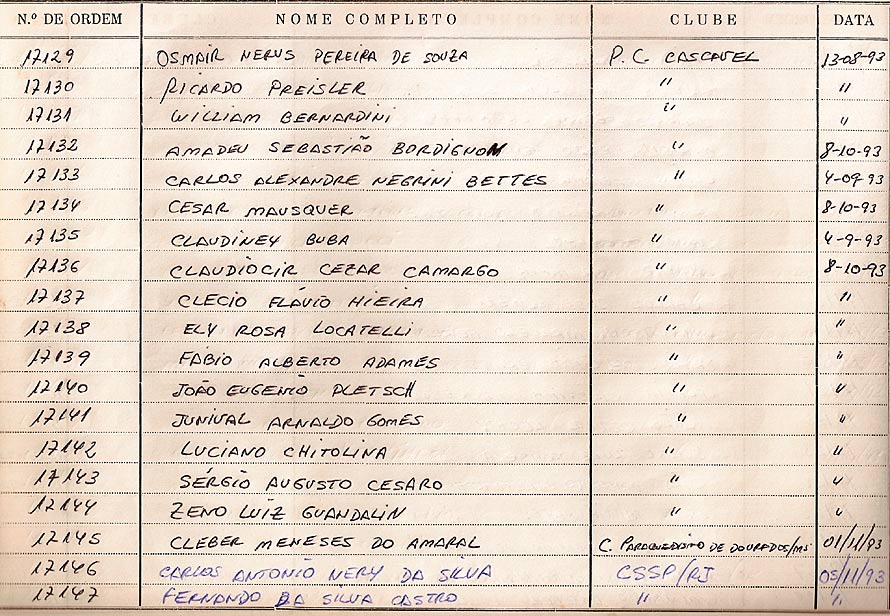 N.º DE ORDEM NOME COMPLETO CLUBE DATA
17129 OSMAIR NERVS PEREIRA DE SOUZA P.C. CASCAVEL 13-08-93
17130 RICARDO PREISLER " "
17131 WILLIAM BERNARDINI " "
17132 AMADEU SEBASTIÃO BORDIGNOM " 8-10-93
17133 CARLOS ALEXANDRE NEGRINI BETTES " 4-09-93
17134 CESAR MAUSQUER " 8-10-93
17135 CLAUDINEY BUBA " 4-9-93
17136 CLAUDIOCIR CEZAR CAMARGO " 8-10-93
17137 CLECIO FLÁVIO HIEIRA " "
17138 ELY ROSA LOCATELLI " "
17139 FABIO ALBERTO ADAMES " "
17140 JOÃO EUGENIO PLETSCH " "
17141 JUNIVAL ARNALDO GOMES " "
17142 LUCIANO CHITOLINA " "
17143 SÉRGIO AUGUSTO CESARO " "
17144 ZENO LUIZ GUANDALIN " "
17145 CLEBER MENESES DO AMARAL C. PARAQUEDISMO DE DOURADOS/MS 01/11/93
17146 CARLOS ANTONIO NERY DA SILVA CSSP/RJ 05/11/93
17147 FERNANDO DA SILVA CASTRO " "